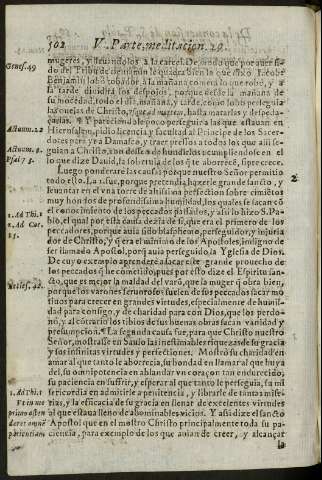 502 V. Parte, meditacion. 29.
mugeres, y lleuandolos a la carcel. De modo que por auer sido
Genes. 49
del Tribu de Beniamin le quadra bien lo que dixo Iacob:
Benjamin lobo robador a la mañana comera lo que robó, y a
la tarde diuidirá los despojos, porque desde la mañana de
su mocedad, todo el dia, mañana, y tarde, como lobo perseguia
las ouejas de Christo,
y pareciendole poco perseguir a las que estauan en
Actuum. 22
Hierusalen, pidio licencia, y facultad al Principe de los Sacerdotes
para yr a Damasco, y traer presos a todos los que alli seguian
a Christo, con desseo de hundirles cumpliendose en el
lo que dize Dauid, la soberuia de los q te aborrecé, sipre crece.
Luego ponderare las causas porque nuestro Señor permitio
todo esto. La 1. fue, porque pretendia hazerle grande sancto, y
leuantar en el vna torre de altissima perfection sobre cimientos
muy hondos de profundissima humildad, los quales se sacan con
el conocimiento de los peccados passados, y assi lo hizo S. Pablo,
1. Ad Thi. 1
el qual por esta causa dezia de si, que era el primero de los
peccadores, porque auia sido blasphemo, perseguidor, y injuriador
de Christo, y q era el minimo de los Apostoles, indigno de
ser llamado Apostol, porq auia perseguido la Yglesia de Dios.
De cuyo exemplo aprendere a sacar este grande prouecho de
los peccados q he cometido, pues por esto dize el Espiritu sancto,
Eccles. 42.
que es mejor la maldad del varó, que la muger q obra bien,
porque los varones feruorosos suelen de sus peccados sacar motiuos
para crecer en grandes virtudes, especialmente de humildad
para consigo, y de charidad para con Dios, que los perdonó,
y al cótrario los tibios de sus buenas obras sacan vanidad y
presumpcion. ¶ La segunda causa fue, para que Christo nuestro
Señor, mostrasse en Saulo las inestimables riquezas de su gracia
y sus infinitas virtudes y perfectiones. Mostro su charidad en
amar al que tanto le aborrecia, su bondad en llamar al que huya
del, su omnipotencia en ablandar vn coraçon tan endurecido,
su paciencia en suffrir, y esperar al que tanto le perseguia, su misericordia
1. Ad Thi. 1
en admitirle a penitencia, y librarle de tantas miserias,
y la efficacia de su gracia en llenar de excelentes virtudes
al que estaua lleno de abominables vicios. Y assi dize el sancto
Apostol que en el mostro Christo principalmente toda su paciencia,
para exemplo de los que auian de creer, y alcançar
la